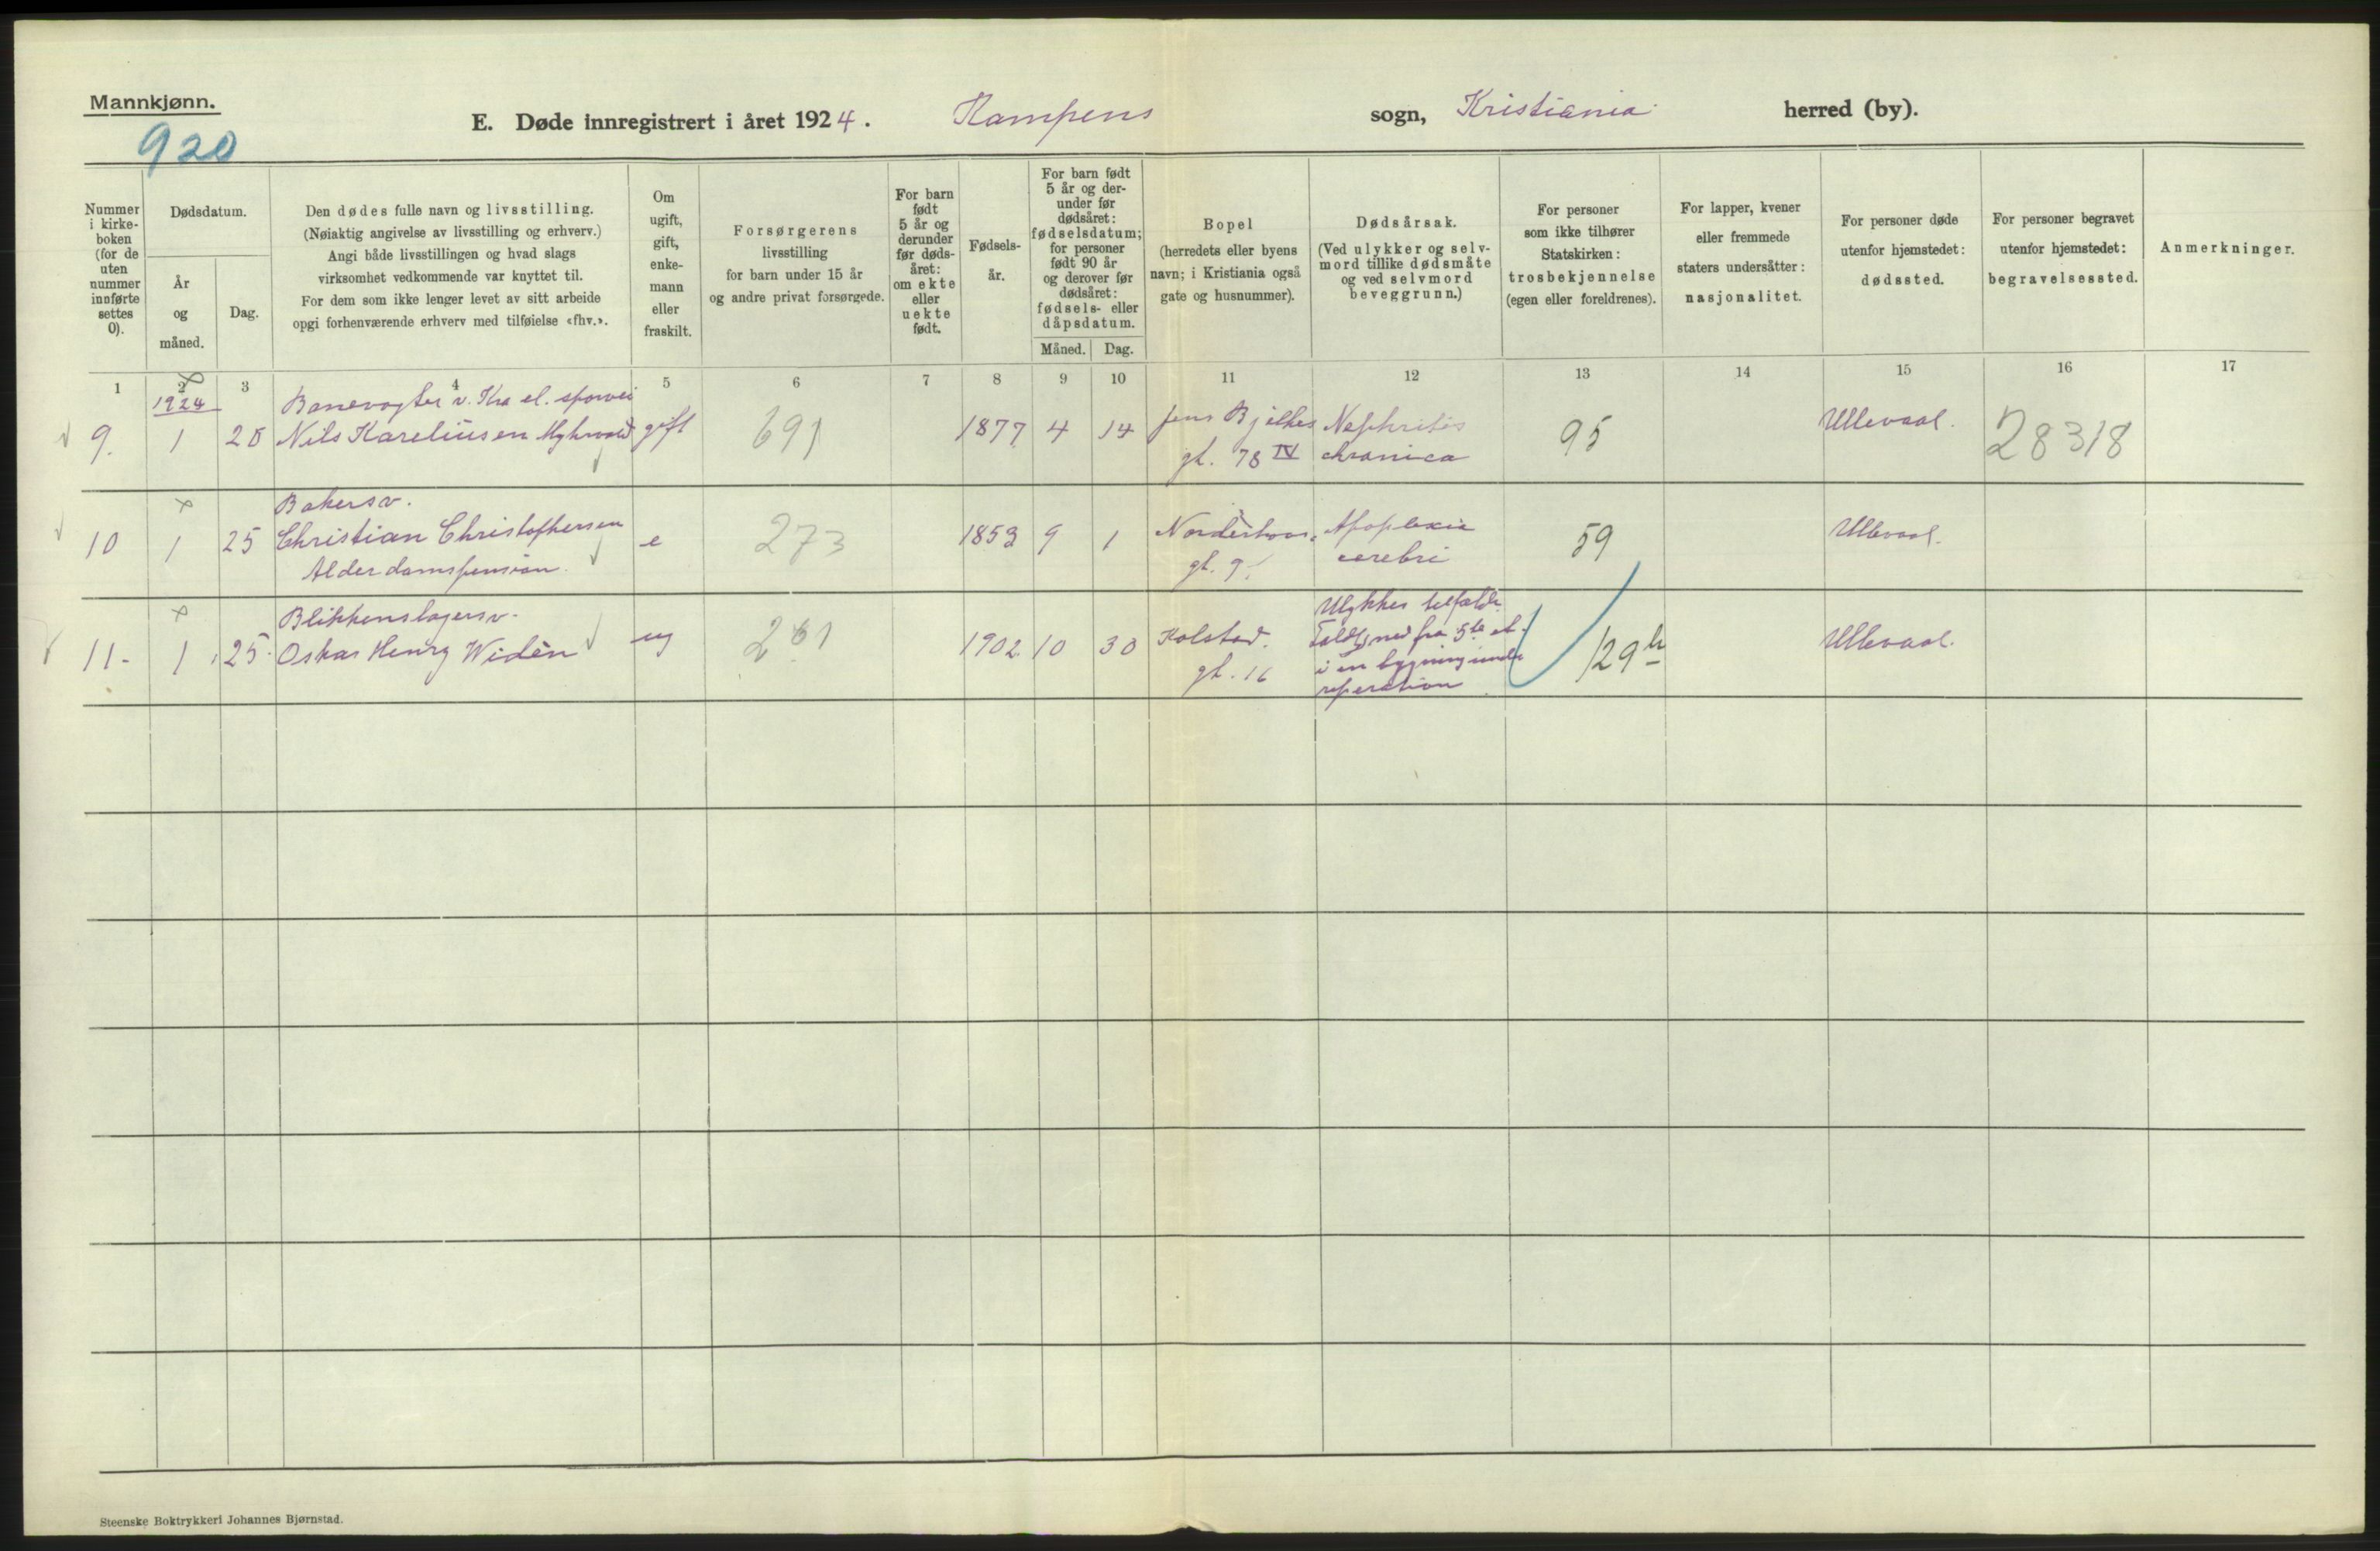 Mannkjønn.
920
E. Døde innregistrert i året 1924. Kampens sogn, Kristiania herred (by).
Nummer
i kirke-
boken
(for de
uten
nummer
innførte
settes
0).
Dødsdatum.
År
og
måned.
Dag.
Den dødes fulle navn og livsstilling.
(Nøiaktig angivelse av livsstilling og erhverv.)
Angi både livsstillingen og hvad slags
virksomhet vedkommende var knyttet til.
For dem som ikke lenger levet av sitt arbeide
opgi forhenværende erhverv med tilføielse «fhv.».
Om
ugift,
gift,
enke-
mann
eller
fraskilt.
Forsørgerens
livsstilling
for barn under 15 år
og andre privat forsørgede.
For barn
født
5 år og
derunder
før døds-
året:
om ekte
eller
uekte
født.
Fødsels-
år.
For barn født
5 år og der-
under før
dødsåret:
fødselsdatum;
for personer
født 90 år
og derover før
dødsåret:
fødsels- eller
dåpsdatum.
Måned. Dag.
Bopel
(herredets eller byens
navn; i Kristiania også
gate og husnummer).
Dødsårsak.
(Ved ulykker og selv-
mord tillike dødsmåte
og ved selvmord
beveggrunn.)
For personer
som ikke tilhører
Statskirken:
trosbekjennelse
(egen eller foreldrenes).
For lapper, kvener
eller fremmede
staters undersåtter:
nasjonalitet.
For personer døde
utenfor hjemstedet:
dødssted.
For personer begravet
utenfor hjemstedet:
begravelsessted.
Anmerkninger.
1 2 3 4 5 6 7 8 9 10 11 12 13 14 15 16 17
1924 Banevogter v. Kra el. sporvei
9. 1 Nils Kareliusen gift 691 1877 4 14 Jens Bjelkes Nephritis 95 Ullevaal. 28318
gt. 78 IV chronica
Bakersv.
10 1 25 Christian Christophersen e 273 1853 9 1 Apoplexia 59 Ullevaal.
Alderdomspension. gt. 9. cerebri
Blikkenslagersv. Ulykkes
11. 1 25. Oskar Henry Widèn ug 1902 10 30 Kolstad. ned fra 5te et. 129 Ullevaal.
gt. 16 i en bygning under
reperation
Steenske Boktrykkeri Johannes Bjørnstad.